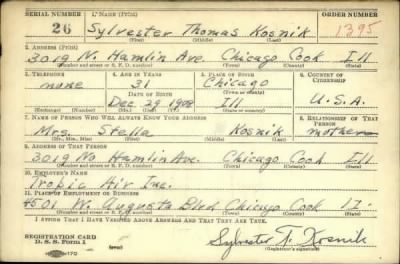 SERIAL NUMBER 1. NAME (Print) ORDER NUMBER
26 Sylvester Thomas Kosnik 1395
(First) (Middle) (Last)
2. ADDRESS (Print)
3019 N. Hamlin Ave. Chicago Cook Ill
(Number and street or R. F. D. number) (Town) (County) (State)
3. TELEPHONE 4. AGE IN YEARS 5. PLACE OF BIRTH 6. COUNTRY OF CITIZENSHIP
none 31 Chicago
DATE OF BIRTH (Town or county)
Dec 29 1908 Ill U.S.A.
(Exchange) (Number) (Mo.) (Day) (Yr.) (State or country)
7. NAME OF PERSON WHO WILL ALWAYS KNOW YOUR ADDRESS 8. RELATIONSHIP OF THAT PERSON
Mrs. Stella Kosnik mother
(Mr., Mrs., Miss) (First) (Middle) (Last)
9. ADDRESS OF THAT PERSON
3019 No Hamlin Ave. Chicago Cook Ill
(Number and street or R. F. D. number) (Town) (County) (State)
10. EMPLOYER'S NAME
Tropic Air Inc.
11. PLACE OF EMPLOYMENT OR BUSINESS
4501 W. Augusta Blvd Chicago Cook Il
(Number and street or R. F. D. number) (Town) (County) (State)
I AFFIRM THAT I HAVE VERIFIED ABOVE ANSWERS AND THAT THEY ARE TRUE.
REGISTRATION CARD
D. S. S. Form 1 Sylvester T. Kosnik
(Registrant's signature)